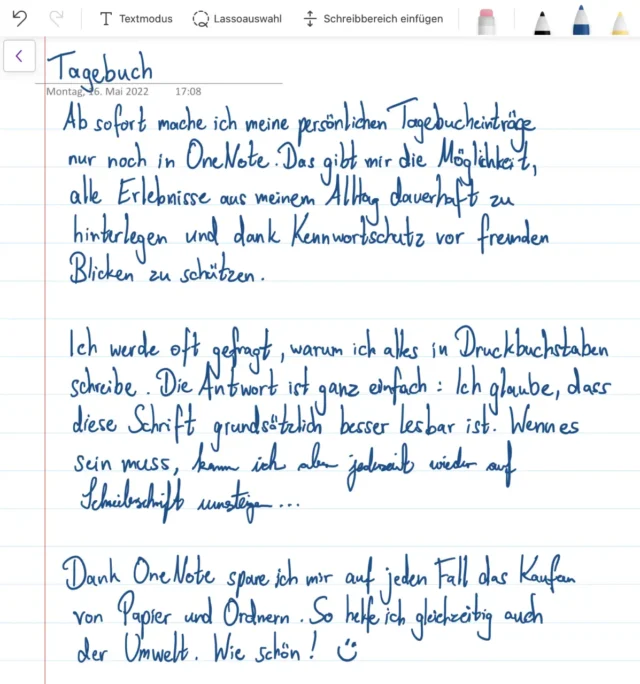 Textmodus Lassoauswahl Schreibbereich einfügen
Tagebuch
Montag, 16. Mai 2022 17:08
Ab sofort mache ich meine persönlichen Tagebucheinträge
nur noch in OneNote. Das gibt mir die Möglichkeit,
alle Erlebnisse aus meinem Alltag dauerhaft zu
hinterlegen und dank Kennwortschutz vor fremden
Blicken zu schützen.
Ich werde oft gefragt, warum ich alles in Druckbuchstaben
schreibe. Die Antwort ist ganz einfach: Ich glaube, dass
diese Schrift grundsätzlich besser lesbar ist. Wenn es
sein muss, kann ich aber jederzeit wieder auf
Schreibschrift umsteigen...
Dank OneNote spare ich mir auf jeden Fall das Kaufen
von Papier und Ordnern. So helfe ich gleichzeitig auch
der Umwelt. Wie schön! ☺